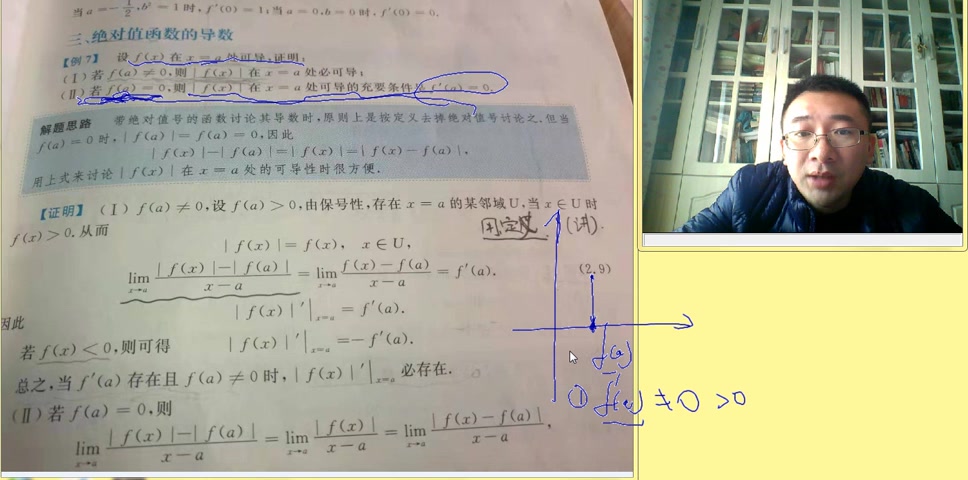 当 a=-1/2, b²=1时, f′(0)=1; 当 a=0, b=0 时, f′(0)=0.
三、绝对值函数的导数
【例7】 设 f(x) 在 x=a 处可导, 证明:
(Ⅰ) 若 f(a)≠0, 则 |f(x)| 在 x=a 处必可导;
(Ⅱ) 若 f(a)=0, 则 |f(x)| 在 x=a 处可导的充要条件是 f′(a)=0.
解题思路 带绝对值号的函数讨论其导数时, 原则上是按定义去掉绝对值号讨论之. 但当
f(a)=0 时, |f(a)|=f(a)=0, 因此
|f(x)|-|f(a)|=|f(x)|=|f(x)-f(a)|,
用上式来讨论 |f(x)| 在 x=a 处的可导性时很方便.
【证明】 (Ⅰ) f(a)≠0, 设 f(a)>0, 由保号性, 存在 x=a 的某邻域 U, 当 x∈U 时
f(x)>0. 从而
(讲).
|f(x)|=f(x), x∈U,
lim x→a (|f(x)|-|f(a)|)/(x-a) = lim x→a (f(x)-f(a))/(x-a) = f′(a).
(2,9)
因此
|f(x)|′|x=a = f′(a).
若 f(x)<0, 则可得 |f(x)|′|x=a = -f′(a).
f(a)
总之, 当 f′(a) 存在且 f(a)≠0 时, |f(x)|′|x=a 必存在.
① f(a) ≠0 >0
(Ⅱ) 若 f(a)=0, 则
lim x→a (|f(x)|-|f(a)|)/(x-a) = lim x→a |f(x)|/(x-a) = lim x→a |f(x)-f(a)|/(x-a),